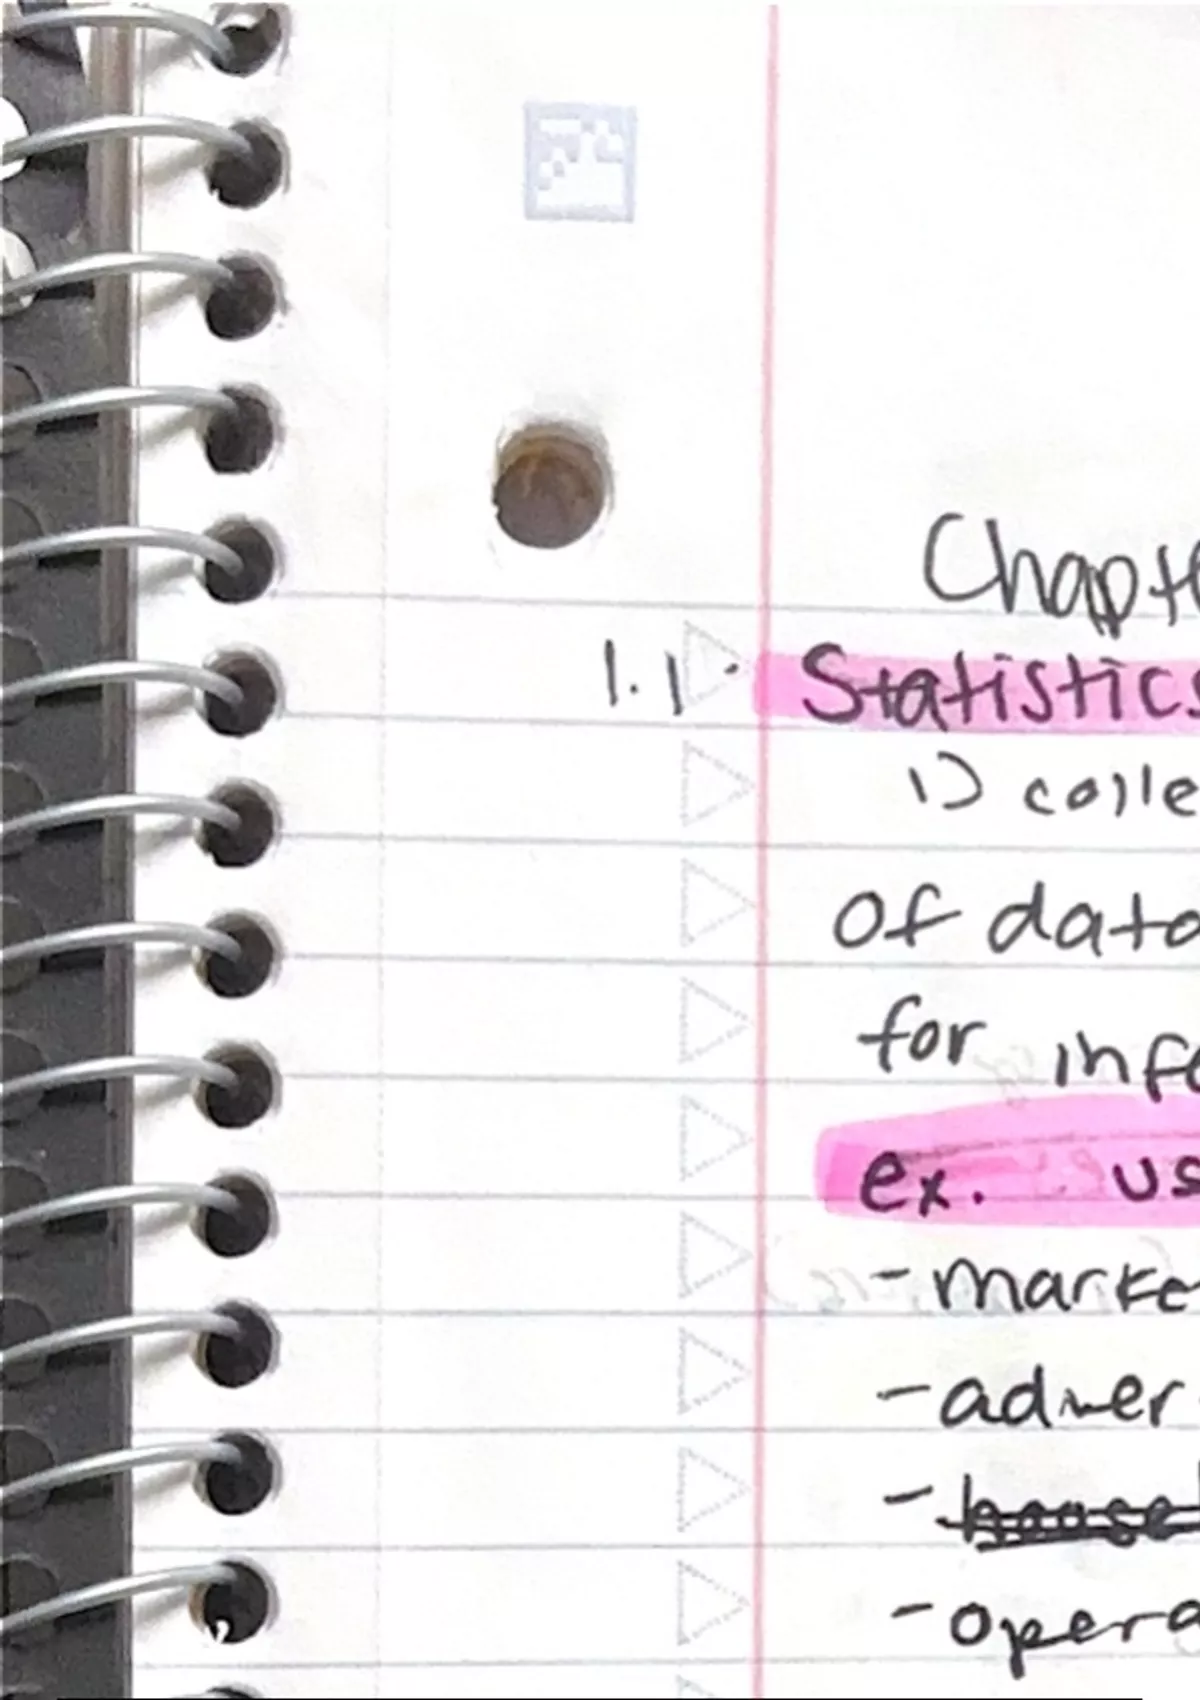 Chapte
1.1. Statistics
1) colle
of data
for info
ex. us
- marke
- adver
- housel
- opera